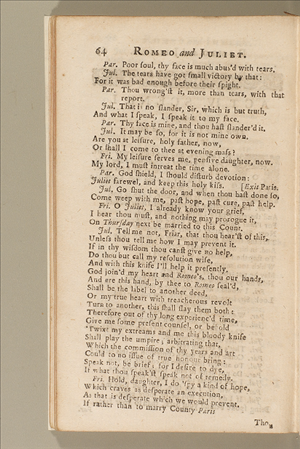 64 ROMEO and JULIET.
Par. Poor soul, thy face is much abus'd with tears.
Jul. The tears have got small victory by that:
For it was bad enough before their spight.
Par. Thou wrong'st it, more than tears, with that
report.
Jul. That is no slander, Sir, which is but truth,
And what I speak, I speak it to my face.
Par. Thy face is mine, and thou hast slander'd it.
Jul. It may be so, for it is not mine own.
Are you at leisure, holy father, now,
Or shall I come to thee at evening mass?
Fri. My leisure serves me, pensive daughter, now.
My lord, I must intreat the time alone.
Par. God shield, I should disturb devotion:
Juliet farewel, and keep this holy kiss. [Exit Paris.
Jul. Go shut the door, and when thou hast done so,
Come weep with me, past hope, past cure, past help.
Fri. O Juliet, I already know your grief,
I hear thou must, and nothing may prorogue it,
On Thursday next be married to this Count.
Jul. Tell me not, Friar, that thou hear'st of this,
Unless thou tell me how I may prevent it.
If in thy wisdom thou canst give no help,
Do thou but call my resolution wise,
And with this knife I'll help it presently.
God join'd my heart and Romeo's, thou our hands,
And ere this hand, by thee to Romeo seal'd,
Shall be the label to another deed,
Or my true heart with treacherous revolt
Turn to another, this shall slay them both:
Therefore out of thy long experienc'd time,
Give me some present counsel, or behold
'Twixt my extreams and me this bloody knife
Shall play the umpire; arbitrating that,
Which the commission of thy years and art
Could to no issue of true honour bring:
Speak not, be brief; for I desire to dye,
If what thou speak'st speak not of remedy.
Fri. Hold, daughter, I do 'spy a kind of hope,
Which craves as desperate an execution,
As that is desperate which we would prevent.
If rather than to marry County Paris
Thou